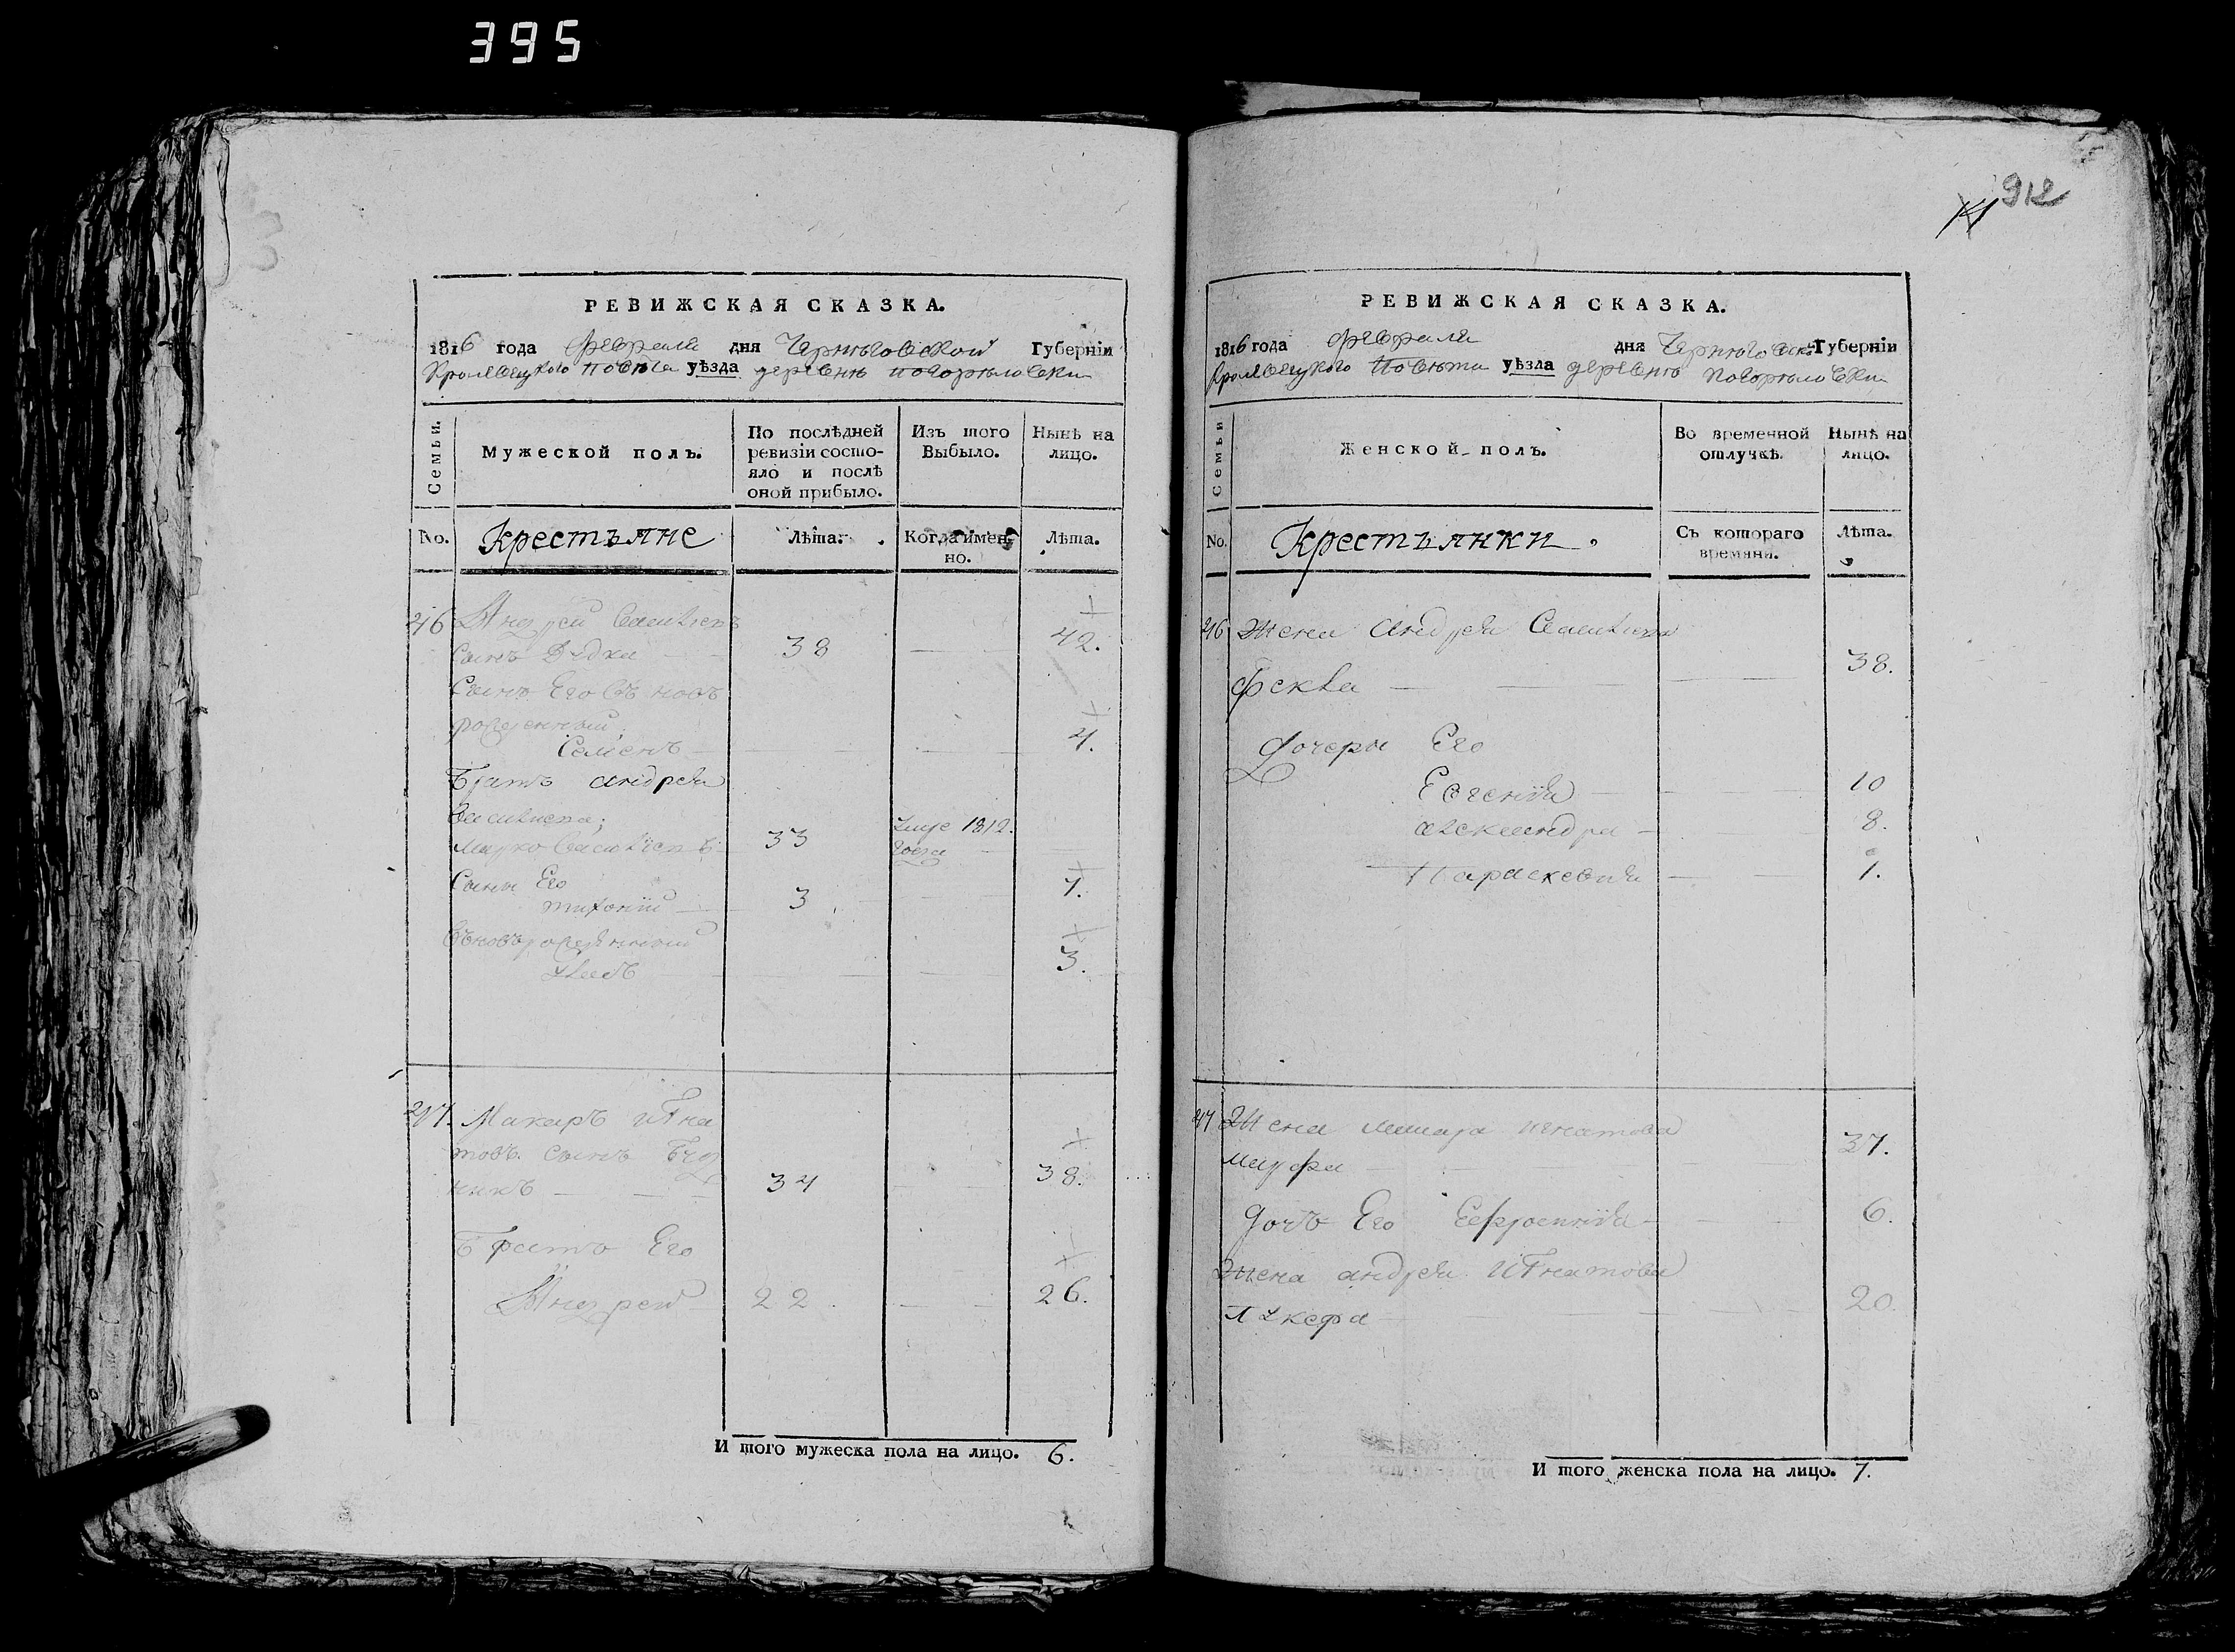 395
912
РЕВИЖСКАЯ СКАЗКА.
1816 года февраля дня Черниговской Губерніи
Кролевецкого Повета уѣзда деревнѣ погорѣловки
Семьи.
Мужеской полъ.
По послѣдней ревизіи состояло и послѣ оной прибыло.
Изъ того Выбыло.
Нынѣ на лицо.
No.
Крестъяне
Лѣта.
Когда имен-
но.
Лѣта.
46 Андрей
сынъ 38 42.
Сынъ Его въ новъ
рожденный
Семенъ 4.
Братъ андрея
33 1812.
года
Сынъ Его 7.
3
въновърожденный 3.
47. Макаръ игна
товъ сынъ
никъ 34 38.
Братъ Его
Андрей 22. 26.
И того мужеска пола на лицо. 6.
РЕВИЖСКАЯ СКАЗКА.
1816 года февраля дня Губерніи
Кролевецкого Повета уѣзда деревнѣ погорѣловки
Семьи
Женской полъ.
Во временной отлучкѣ.
Нынѣ на лицо.
No.
Крестъянки.
Съ котораго времяни.
Лѣта.
46 Жена андрея
38.
Фекла
дочери Его
Евгенія 10
александра 8.
Параскевия 1.
47 Жена макара игнатова
37.
марфа
дочь Его Ефросинія 6.
жена андрея игнатова
20.
И того женска пола на лицо. 7.